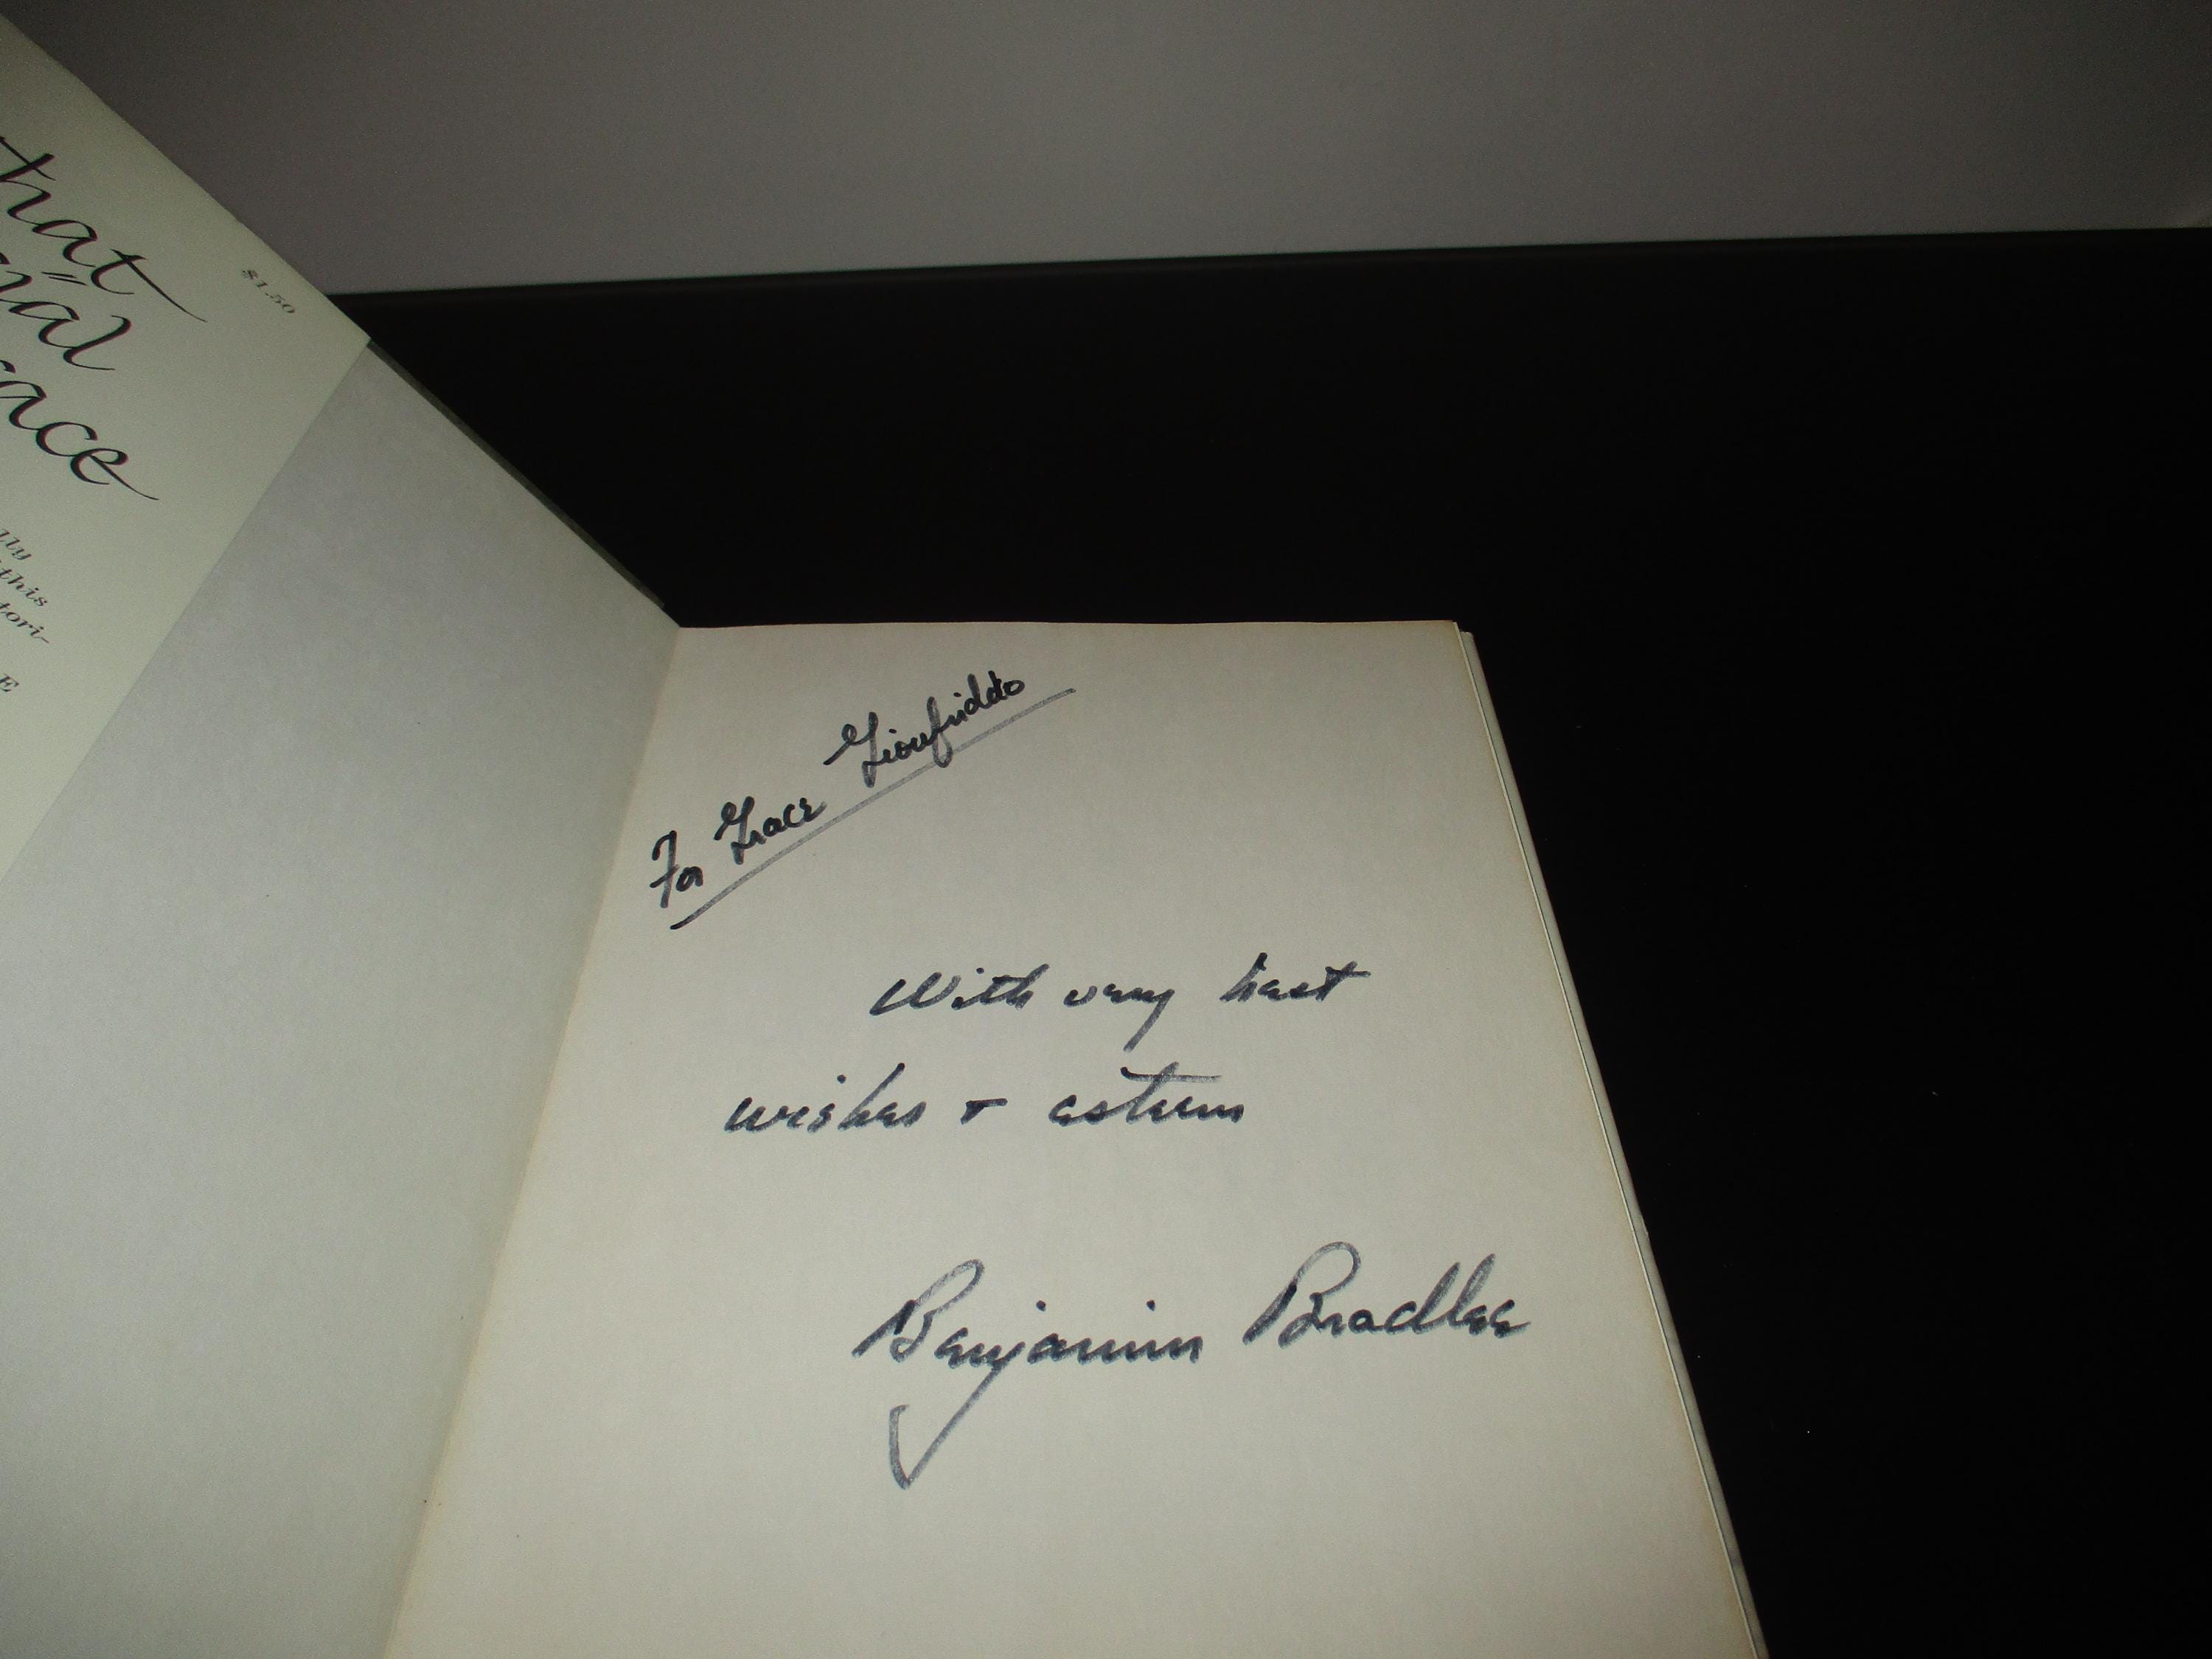 $1.50
lly
this
tori-
E
For Grace Gioufriddo
With very best
wishes + esteem
Benjamin Bradlee